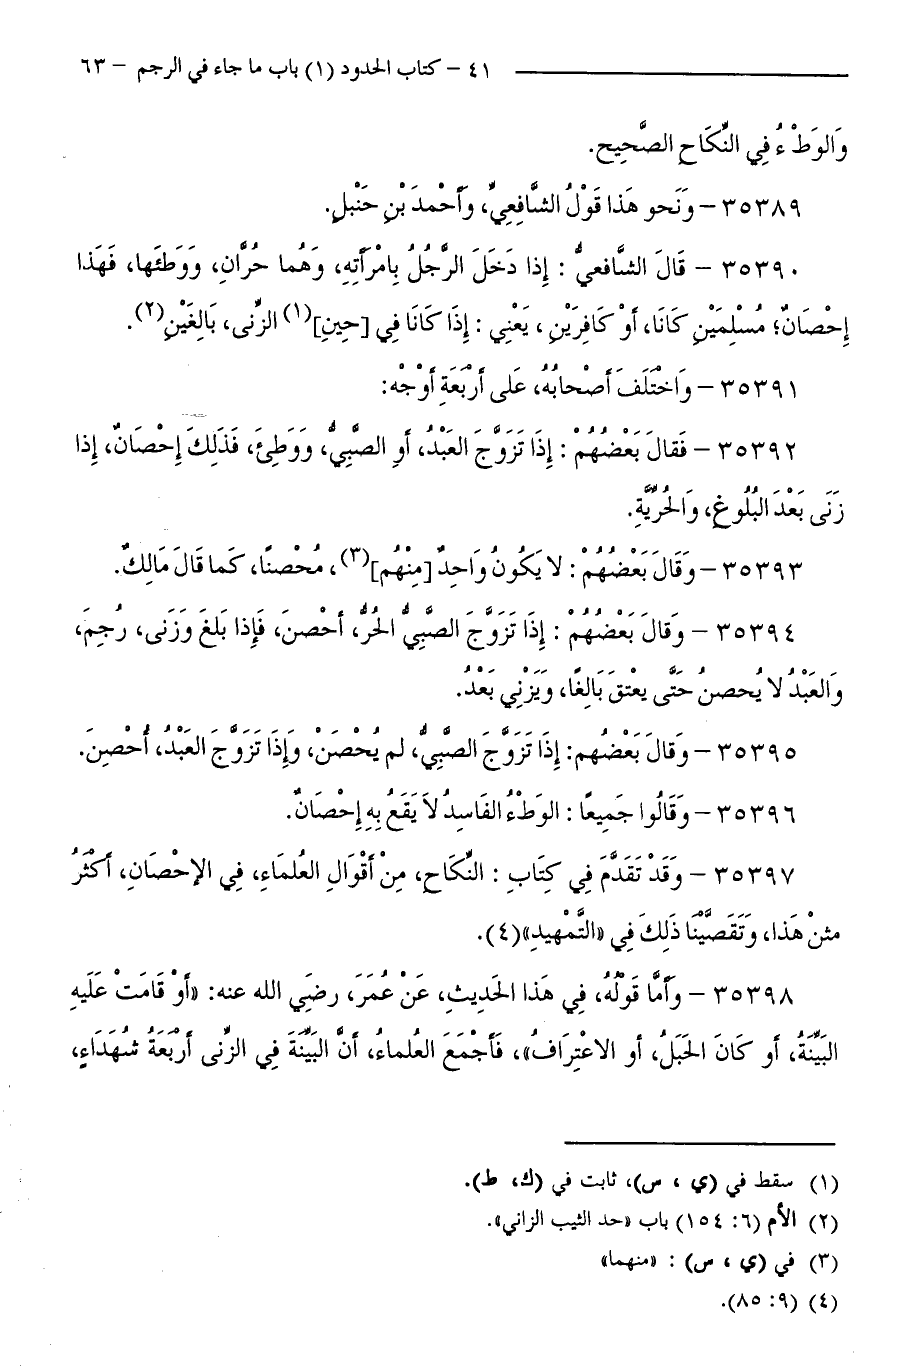 ٤١ – كتاب الحدود (١) باب ما جاء في الرجم – ٦٣
وَالوَطْءُ فِي النِّكَاحِ الصَّحِيح.
٣٥٣٨٩ – وَنَحو هَذا قَوْلُ الشَّافِعِيِّ، وَأَحْمدَ بْنِ حَنْبلٍ.
٣٥٣٩٠ – قَالَ الشَّافعيُّ : إِذا دَخَلَ الرَّجُلُ بِامْرَأَتِهِ، وَهُما حُرَّانِ، وَوَطِئَها، فَهَذا
إِحْصَانٌ؛ مُسْلِمَيْنِ كَانَا، أَوْ كَافِرَيْنِ ، يَعْنِي : إِذَا كَانَا فِي [حِينِ](١) الزِّنى، بَالِغَيْنِ(٢).
٣٥٣٩١ – وَاخْتَلَفَ أَصْحابُهُ، عَلى أَرْبَعَةِ أَوْجُه:
٣٥٣٩٢ – فَقالَ بَعْضُهُمْ : إِذَا تَزَوَّجَ العَبْدُ، أَوِ الصَّبِيُّ، وَوَطِئَ، فَذَلِكَ إِحْصَانٌ، إِذا
زَنَى بَعْدَ البُلُوغِ، وَالحُرِّيَّةِ.
٣٥٣٩٣ – وَقَالَ بَعْضُهُمْ : لا يَكُونُ وَاحِدٌ [مِنْهُم](٣)، مُحْصنًا، كَما قَالَ مَالِكٌ.
٣٥٣٩٤ – وَقَالَ بَعْضُهُمْ : إِذَا تَزَوَّجَ الصَّبِيُّ الحُرُّ، أَحْصنَ، فَإِذا بَلغَ وَزَنى، رُجِمَ،
وَالعَبْدُ لا يُحصنُ حَتَّى يعْتقَ بَالِغًا، وَيَزْنِي بَعْدُ.
٣٥٣٩٥ – وَقَالَ بَعْضُهُم: إِذَا تَزَوَّجَ الصَّبِيُّ، لم يُحْصَنْ، وَإِذَا تَزَوَّجَ العَبْدُ، أُحْصِنَ.
٣٥٣٩٦ – وَقَالُوا جَمِيعًا : الوَطْءُ الفَاسِدُ لاَ يَقَعُ بِهِ إِحْصَانٌ.
٣٥٣٩٧ – وَقَدْ تَقَدَّمَ فِي كِتَابِ : النِّكَاحِ، مِنْ أَقْوَالِ العُلَمَاءِ، فِي الإِحْصَانِ، أَكْثَرُ
مثنْ هَذا، وَتَقَصَّيْنَا ذَلِكَ فِي «التَّمْهِيدِ»(٤).
٣٥٣٩٨ – وَأَمَّا قَوْلُهُ، فِي هَذَا الحَدِيثِ، عَنْ عُمَرَ، رضِيَ الله عنه: «أَوْ قَامَتْ عَلَيهِ
البَيِّنَةُ، أَو كَانَ الحَبَلُ، أَو الاعْتِرَافُ»، فَأَجْمَعَ العُلماءُ، أَنَّ البَيِّنَةَ فِي الزِّنى أَرْبَعَةُ شُهَدَاءٍ،
(١) سقط في (ي ، س)، ثابت في (ك، ط).
(٢) الأم (٦: ١٥٤) باب «حد الثيب الزاني».
(٣) في (ي ، س) : «منهما»
(٤) (٩: ٨٥).